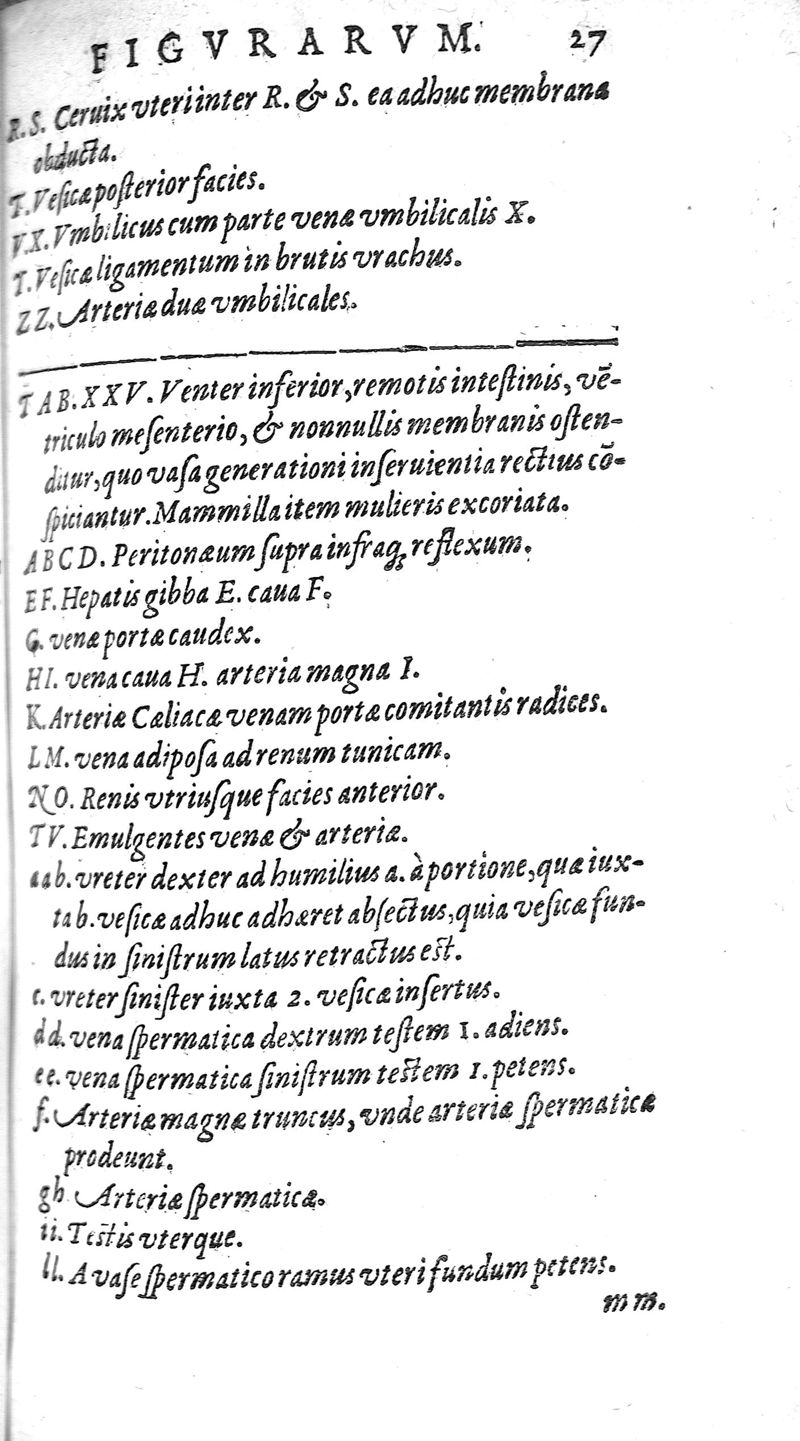 FIGVRARVM. 27
R.S. Ceruix vteri inter R. & S. ea adhuc membrana
obducta.
T. Vesicæ posterior facies.
V.X. Vmbilicus cum parte venæ vmbilicalis X.
T. Vesicæ ligamentum in brutis vrachus.
ZZ. Arteriæ duæ vmbilicales.
TAB. XXV. Venter inferior, remotis intestinis, vẽ-
triculo mesenterio, & nonnullis membranis osten-
ditur, quo vasa generationi inseruientia rectius cõ-
spiciantur. Mammilla item mulieris excoriata.
ABCD. Peritonæum supra infraq; reflexum.
EF. Hepatis gibba E. caua F.
G. venæ portæ caudex.
HI. vena caua H. arteria magna I.
K. Arteriæ Cæliacæ venam portæ comitantis radices.
LM. vena adiposa ad renum tunicam.
NO. Renis vtriusque facies anterior.
TV. Emulgentes venæ & arteriæ.
aab. vreter dexter ad humilius a. à portione, quæ iux-
ta b. vesicæ adhuc adhæret absectus, quia vesicæ fun-
dus in sinistrum latus retractus est.
c. vreter sinister iuxta 2. vesicæ insertus.
dd. vena spermatica dextrum testem 1. adiens.
ee. vena spermatica sinistrum testem 1. petens.
f. Arteriæ magnæ truncus, vnde arteriæ spermaticæ
prodeunt.
gh Arteriæ spermaticæ.
ii. Testis vterque.
ll. A vase spermatico ramus vteri fundum petens.
mm.